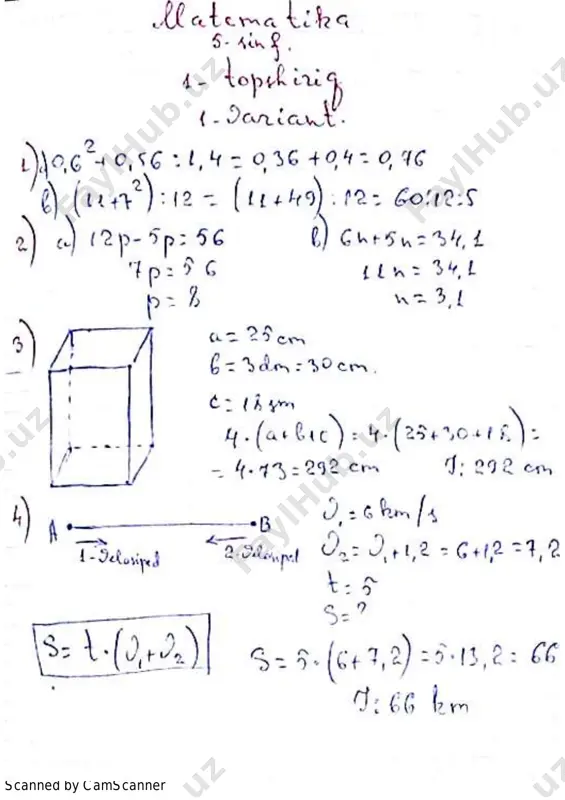 Matematika
5-sinf.
1-topshiriq
1-Variant.
1) a) 0,6² + 0,56 : 1,4 = 0,36 + 0,4 = 0,76
b) (11+7²) : 12 = (11+49) : 12 = 60:12=5
2) a) 12p-5p=56 b) 6n+5n=34,1
7p=56 11n=34,1
p=8 n=3,1
3) a=25cm
b=3dm=30cm.
c=18sm
4·(a+b+c)=4·(25+30+18)=
=4·73=292 cm J: 292 cm
4) A B V₁=6 km/s
1-Velosiped 2-Velosiped V₂=V₁+1,2=6+1,2=7,2
t=5
S=?
S=t·(V₁+V₂) S=5·(6+7,2)=5·13,2=66
J: 66 km
Scanned by CamScanner
FaylHub.uz